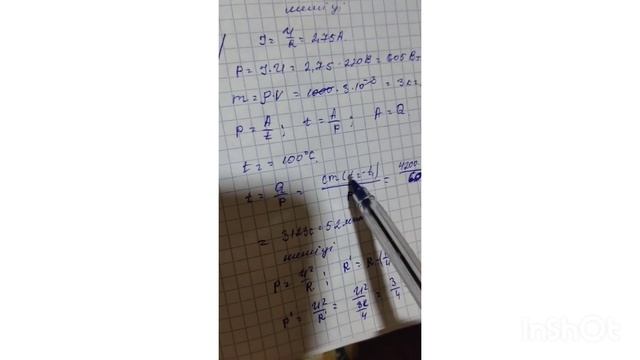 шешуі
I = U/R = 2,75 A.
P = I·U = 2,75 · 220 В = 605 Вт
m = ρ·V = 1000 · 3·10⁻³ = 3 кг
P = A/t ; t = A/P ; A = Q.
t₂ = 100°C.
t = Q/P = cm(t₂-t₁) = 4200
= 3123с = 52 мин
шешуі
P = U²/R ; R' = R
P' = U²/R' = U²/(3R/4) = 3/4
InShot